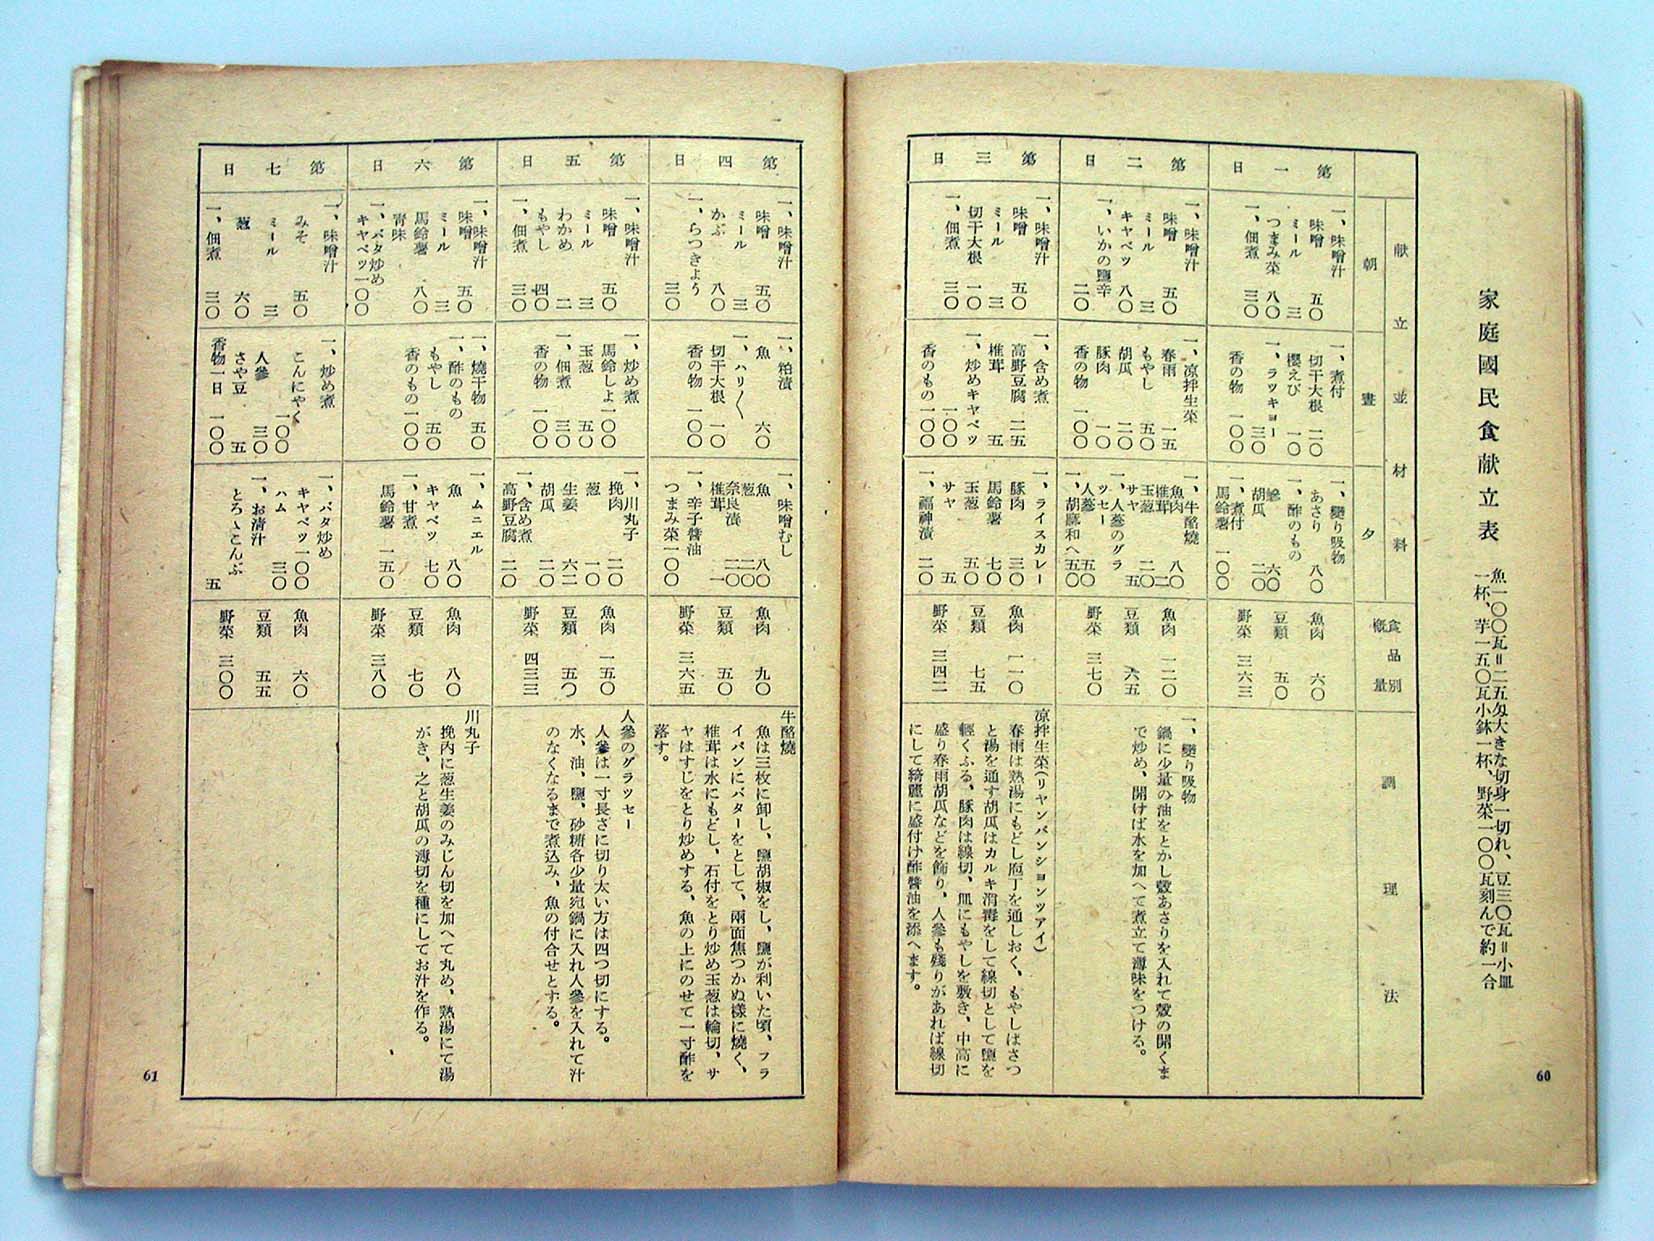 家庭國民食献立表
魚一〇〇瓦＝二五匁大きな切身一切れ、豆三〇瓦＝小皿
一杯、芋一五〇瓦小鉢一杯、野菜一〇〇瓦刻んで約一合
献立並材料
朝
晝
夕
食品別
概量
調理法
第一日
一、味噌汁
味噌 五〇
ミール 三
つまみ菜 八〇
一、佃煮 三〇
一、煮付
切干大根 二〇
櫻えび 一〇
一、ラッキョー 三〇
香の物 一〇〇
一、變り吸物
あさり 八〇
一、酢のもの
六〇
胡瓜 二〇
一、煮付
馬鈴薯 一〇〇
魚肉 六〇
豆類 五〇
野菜 三六三
第二日
一、味噌汁
味噌 五〇
ミール 三
キャベツ 八〇
一、いかの鹽辛 二〇
一、凉拌生菜
春雨 一五
もやし 五〇
胡瓜 二〇
豚肉 一〇
香の物 一〇〇
一、牛酪燒
魚肉 八〇
椎茸 二
玉葱 二〇
サヤ 五
一、人蔘のグラ
ッセー
人蔘 五〇
一、胡麻和へ 五〇
魚肉 一二〇
豆類 六五
野菜 三七〇
一、變り吸物
鍋に少量の油をとかし殼あさりを入れて殼の開くま
で炒め、開けば水を加へて煮立て薄味をつける。
第三日
一、味噌汁
味噌 五〇
ミール 三
切干大根 一〇
一、佃煮 三〇
一、含め煮
高野豆腐 二五
椎茸 五
一、炒めキャベツ
一〇〇
香のもの 一〇〇
一、ライスカレー
豚肉 三〇
馬鈴薯 七〇
玉葱 五〇
サヤ 五
一、福神漬 二〇
魚肉 一一〇
豆類 七五
野菜 三四二
凉拌生菜(リヤンバンションツァイ)
春雨は熟湯にもどし庖丁を通しおく、もやしはさつ
と湯を通す胡瓜はカルキ消毒をして線切として鹽を
輕くふる、豚肉は線切、皿にもやしを敷き、中高に
盛り春雨胡瓜などを飾り、人參も殘りがあれば線切
にして綺麗に盛付け酢醤油を添へます。
60
第四日
一、味噌汁
味噌 五〇
ミール 三
かぶ 八〇
一、らつきよう 三〇
一、粕漬
魚 六〇
一、ハリ〱
切干大根 一〇
香の物 一〇〇
一、味噌むし
魚 八〇
葱 二〇
奈良漬 二〇
椎茸 一
一、辛子醤油
つまみ菜 一〇〇
魚肉 九〇
豆類 五〇
野菜 三六五
牛酪燒
魚は三枚に卸し、鹽胡椒をし、鹽が利いた頃、フラ
イパンにバターをとして、兩面焦つかぬ樣に燒く、
椎茸は水にもどし、石付をとり炒め玉葱は輪切、サ
ヤはすじをとり炒めする、魚の上にのせて一寸酢を
落す。
第五日
一、味噌汁
味噌 五〇
ミール 三
わかめ 二
もやし 四〇
一、佃煮 三〇
一、炒め煮
馬鈴しよ 一〇〇
玉葱 五〇
一、佃煮 三〇
香の物 一〇〇
一、川丸子
挽肉 二〇
葱 一〇
生姜 六二
胡瓜 二〇
一、含め煮
高野豆腐 二〇
魚肉 一五〇
豆類 五〇
野菜 四三三
人參のグラッセー
人參は一寸長さに切り太い方は四つ切にする。
水、油、鹽、砂糖各少量宛鍋に入れ人參を入れて汁
のなくなるまで煮込み、魚の付合せとする。
第六日
一、味噌汁
味噌 五〇
ミール 三
馬鈴薯 八〇
靑味
一、バタ炒め
キャベツ 一〇〇
一、燒干物 五〇
一、酢のもの
もやし 五〇
香のもの 一〇〇
一、ムニエル
魚 八〇
キャベツ 七〇
一、甘煮
馬鈴薯 一五〇
魚肉 八〇
豆類 七〇
野菜 三八〇
川丸子
挽肉に葱生姜のみじん切を加へて丸め、熟湯にて湯
がき、之と胡瓜の薄切を種にしてお汁を作る。
第七日
一、味噌汁
みそ 五〇
ミール 三
葱 六〇
一、佃煮 三〇
一、炒め煮
こんにやく 一〇〇
人參 三〇
さや豆 五
香物一日 一〇〇
一、バタ炒め
キャベツ 一〇〇
ハム 三〇
一、お清汁
とろゝこんぶ 五
魚肉 六〇
豆類 五五
野菜 三〇〇
61